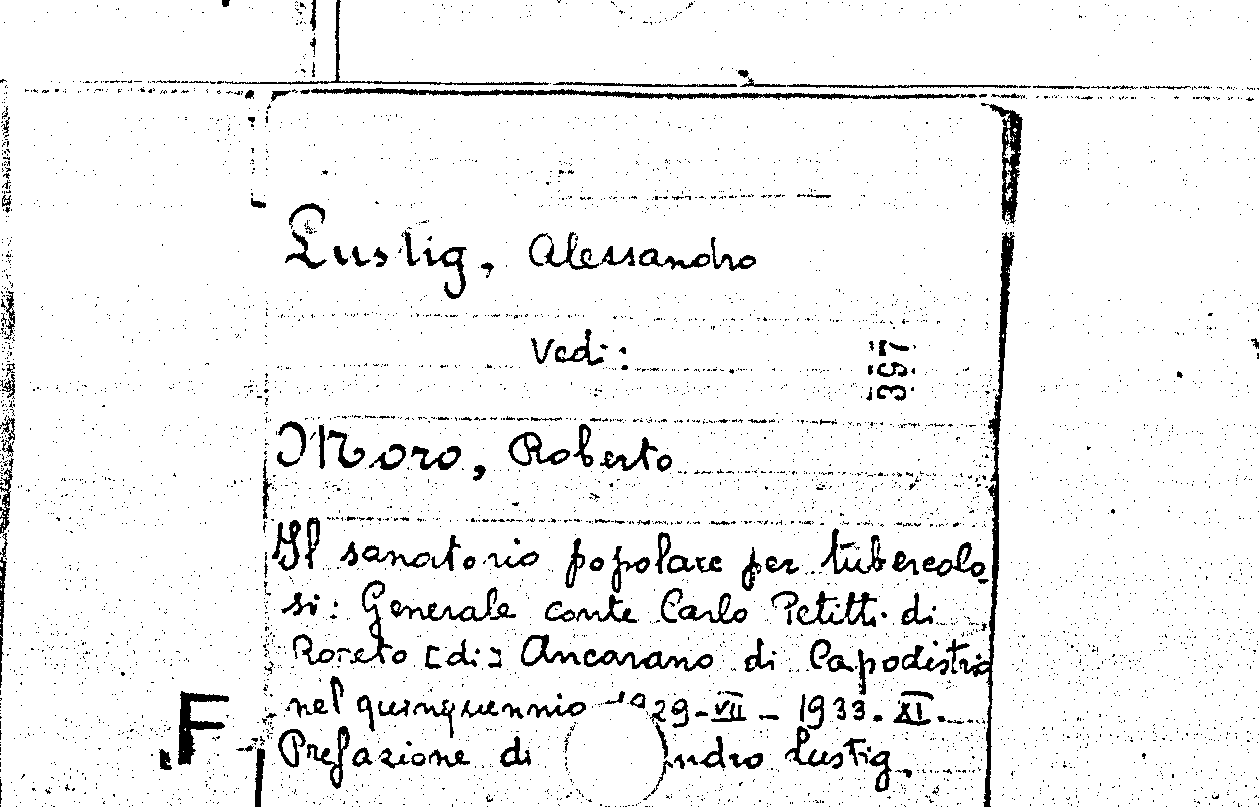 Lustig, Alessandro
Vedi:
397
Moro, Roberto
Il sanatorio popolare per tubercolo-
si: Generale conte Carlo Petitti di
Roreto [di] Ancarano di Capodistria
nel quinquennio 1929-VII - 1933-XI.
Prefazione di ndro Lustig.
F